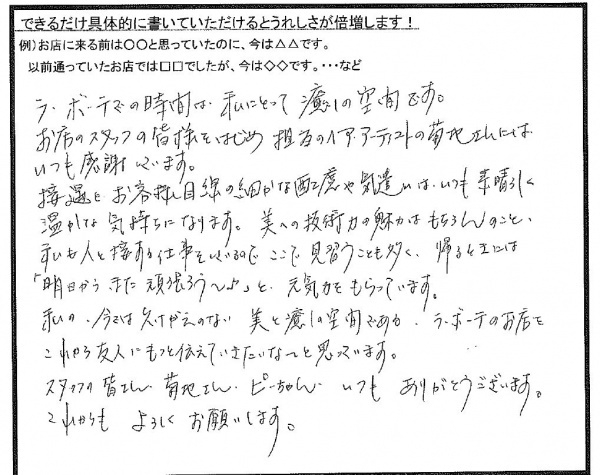 できるだけ具体的に書いていただけるとうれしさが倍増します！
例）お店に来る前は〇〇と思っていたのに、今は△△です。
以前通っていたお店では□□でしたが、今は◇◇です。・・・など
ラ・ボーテでの時間は、私にとって癒しの空間です。
お店のスタッフの皆様をはじめ 担当のヘア・アーティストの菊地さんには
いつも感謝しています。
接遇と お客様目線の細かな配慮や気遣いは、いつも素晴らしく
温かな気持ちになります。美への技術力の魅力はもちろんのこと、
私も人と接する仕事をしているので ここで見習うことも多く、帰るときには
「明日から また 頑張ろう〜♪」と、元気力をもらっています。
私の、今では欠けがえのない 美と癒しの空間である、ラ・ボーテのお店を
これから友人にもっと伝えていきたいな〜と思っています。
スタッフの皆さん、菊地さん、ピーちゃん、いつも ありがとうございます。
これからも よろしくお願いします。